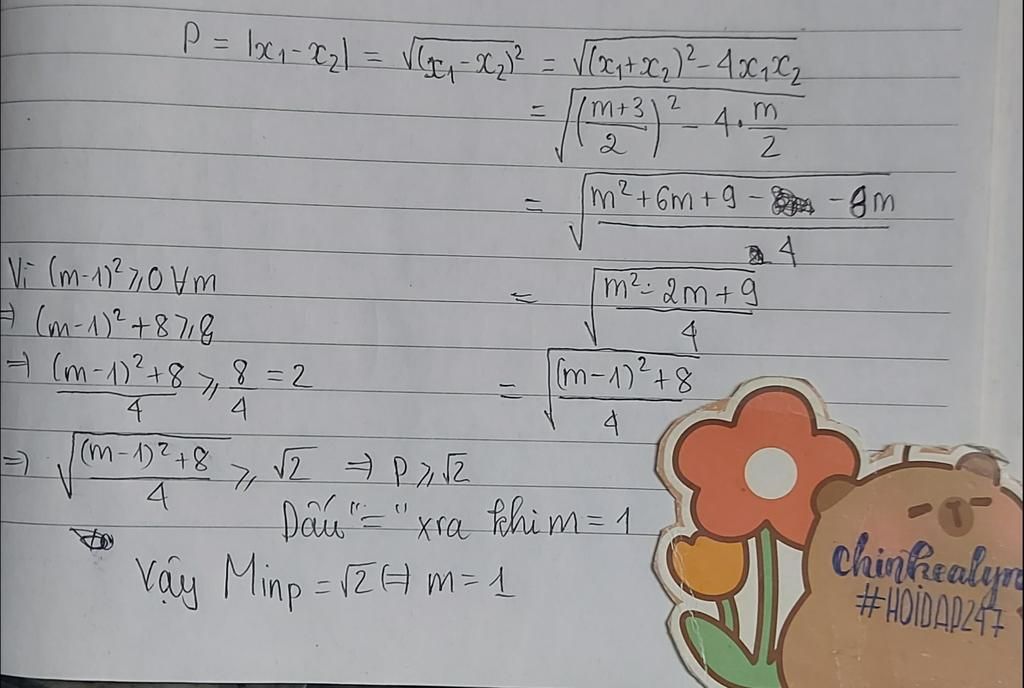 P = |x₁ - x₂| = √(x₁ - x₂)² = √(x₁+x₂)² - 4x₁x₂
= √((m+3)/2)² - 4.m/2
= √(m² + 6m + 9 - 8m)/4
= √(m² - 2m + 9)/4
= √((m-1)² + 8)/4
Vì (m-1)² ≥ 0 ∀m
⇒ (m-1)² + 8 ≥ 8
⇒ ((m-1)² + 8)/4 ≥ 8/4 = 2
⇒ √((m-1)² + 8)/4 ≥ √2 ⇒ P ≥ √2
Dấu "=" xra khi m = 1
Vậy Minp = √2 ⇔ m = 1
chinkealyn
#HOIDAP247